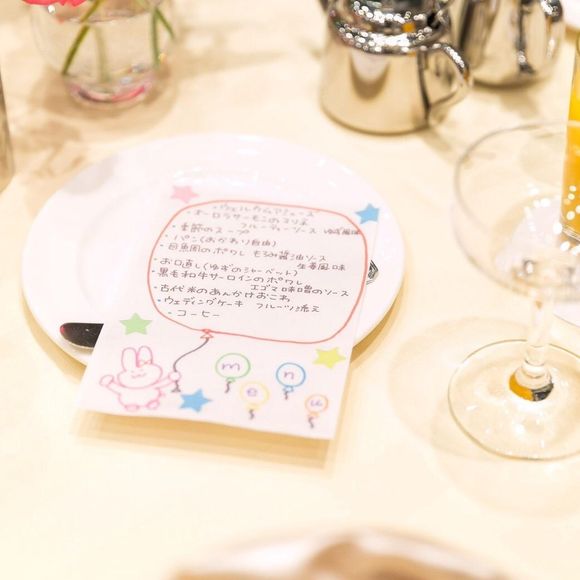 ・ウェルカムアミューズ
・オーロラサーモンのマリネ
フルーティーソース ゆず風味
・季節のスープ
・パン(おかわり自由)
・白魚周のポワレ もろみ醤油ソース
生姜風味
・お口直し(ゆずのシャーベット)
・黒毛和牛サーロインのポワレ
エゴマ味噌のソース
・古代米のあんかけおこわ
・ウェディングケーキ フルーツ添え
・コーヒー
menu